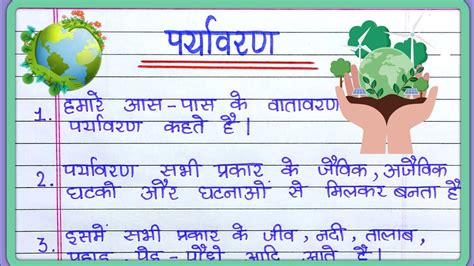 पर्यावरण
1. हमारे आस-पास के वातावरण
पर्यावरण कहते है।
2. पर्यावरण सभी प्रकार के जैविक, अजैविक
घटको और घटनाओं से मिलकर बनता है
3. इसमें सभी प्रकार के जीव, नदी, तालाब,
पहाड़, पेड़-पौधो आदि आते है।